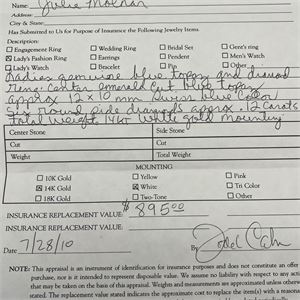 Name: Julie Molnar
Address:
City & State:
Has Submitted to Us for Purpose of Insurance the Following Jewelry Items.
Description:
Engagement Ring Wedding Ring Bridal Set Gent's ring
Lady's Fashion Ring Earrings Pendent Men's Watch
Lady's Watch Bracelet Pin Other
Ladies genuine blue topaz and diamond
ring. Center emerald cut blue topaz
approx. 12 x 10 mm Swiss blue color
Full round side diamonds approx. .12 carats
total weight 14kt white gold mounting
Center Stone Side Stone
Cut Cut
Weight Total Weight
MOUNTING
10K Gold Yellow Pink
14K Gold White Tri Color
18K Gold Two-Tone Other
INSURANCE REPLACEMENT VALUE: $ 895.00
INSURANCE REPLACEMENT VALUE:
Date 7/28/10 By
NOTE: This appraisal is an instrument of identification for insurance purposes and does not constitute an offer
purchase, nor is it intended to represent disposable value. We assume no liability with respect to any acti
that may be taken on the basis of this appraisal. Weights and measurements are approximated unless otherw
stated. The replacement value stated indicates the approximate cost to replace the item(s) with a reasona